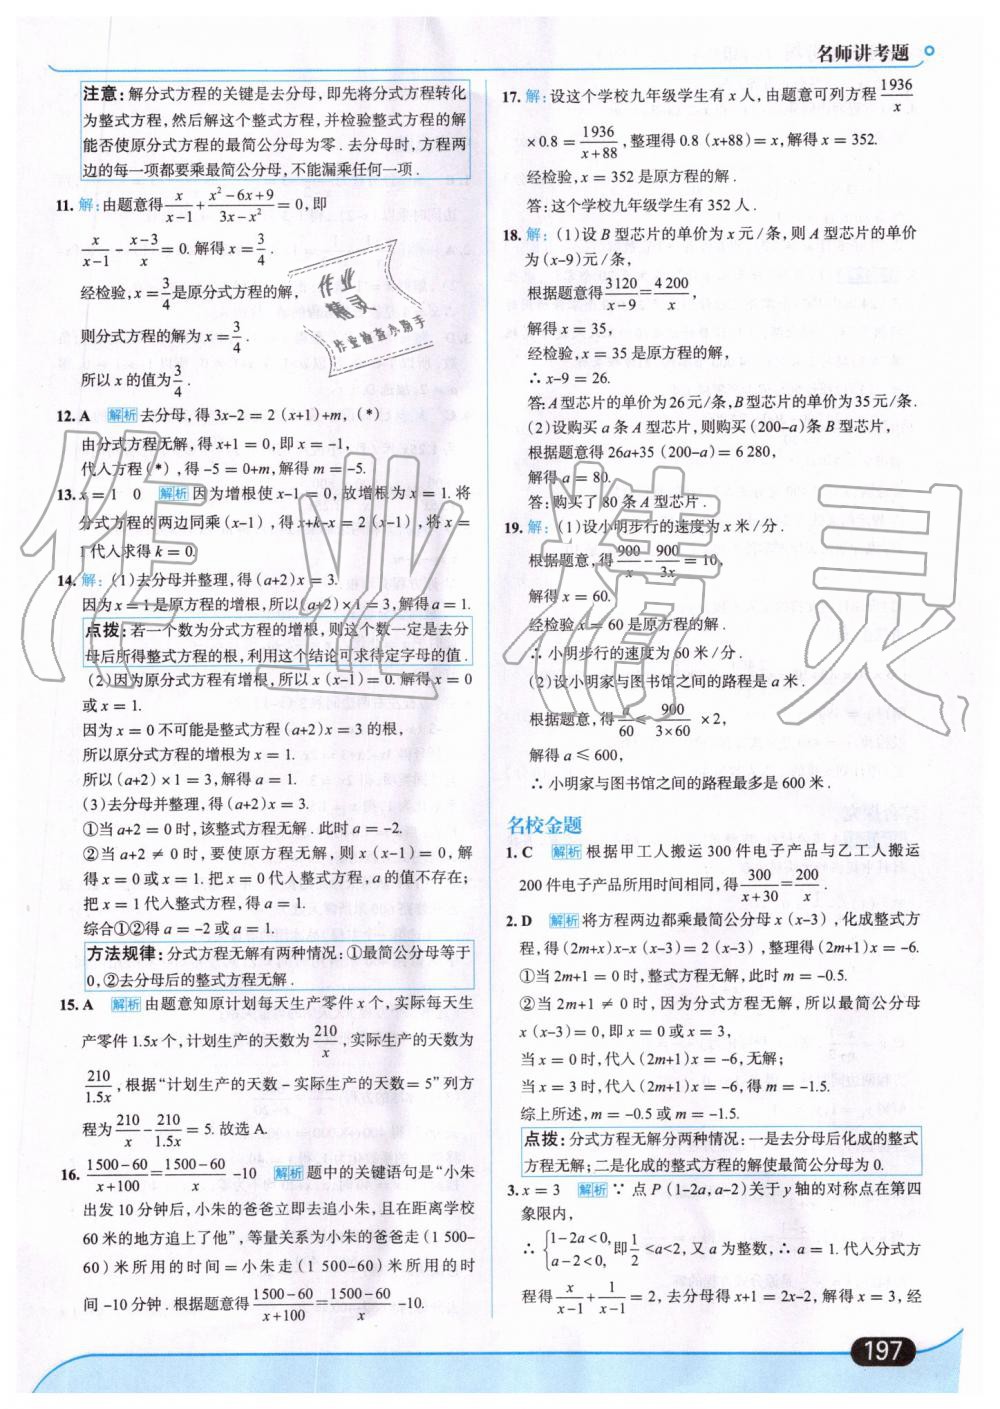 名师讲考题
注意:解分式方程的关键是去分母,即先将分式方程转化
为整式方程,然后解这个整式方程,并检验整式方程的解
能否使原分式方程的最简公分母为零.去分母时,方程两
边的每一项都要乘最简公分母,不能漏乘任何一项.
11. 解:由题意得x/(x-1)+(x²-6x+9)/(3x-x²)=0,即
x/(x-1)-(x-3)/x=0.解得x=3/4.
经检验,x=3/4是原分式方程的解,
则分式方程的解为x=3/4.
所以x的值为3/4.
12. A 解析 去分母,得3x-2=2(x+1)+m,(*)
由分式方程无解,得x+1=0,即x=-1,
代入方程(*),得-5=0+m,解得m=-5.
13. x=1 0 解析 因为增根使x-1=0,故增根为x=1.将
分式方程的两边同乘(x-1),得x+k-x=2(x-1),将x=
1代入求得k=0.
14. 解:(1)去分母并整理,得(a+2)x=3.
因为x=1是原方程的增根,所以(a+2)×1=3,解得a=1.
点拨:若一个数为分式方程的增根,则这个数一定是去分
母后所得整式方程的根,利用这个结论可求待定字母的值.
(2)因为原分式方程有增根,所以x(x-1)=0.解得x=0
或x=1.
因为x=0不可能是整式方程(a+2)x=3的根,
所以原分式方程的增根为x=1.
所以(a+2)×1=3,解得a=1.
(3)去分母并整理,得(a+2)x=3.
①当a+2=0时,该整式方程无解.此时a=-2.
②当a+2≠0时,要使原方程无解,则x(x-1)=0,解
得x=0或x=1.把x=0代入整式方程,a的值不存在;
把x=1代入整式方程,得a=1.
综合①②得a=-2或a=1.
方法规律:分式方程无解有两种情况:①最简公分母等于
0,②去分母后的整式方程无解.
15. A 解析 由题意知原计划每天生产零件x个,实际每天生
产零件1.5x个,计划生产的天数为210/x,实际生产的天数为
210/1.5x,根据“计划生产的天数-实际生产的天数=5”列方
程为210/x-210/1.5x=5.故选A.
16. (1500-60)/(x+100)=(1500-60)/x-10 解析 题中的关键语句是“小朱
出发10分钟后,小朱的爸爸立即去追小朱,且在距离学校
60米的地方追上了他”,等量关系为小朱的爸爸走(1 500-
60)米所用的时间=小朱走(1 500-60)米所用的时
间-10分钟.根据题意得(1500-60)/(x+100)=(1500-60)/x-10.
17. 解:设这个学校九年级学生有x人,由题意可列方程1936/x
×0.8=1936/(x+88),整理得0.8(x+88)=x,解得x=352.
经检验,x=352是原方程的解.
答:这个学校九年级学生有352人.
18. 解:(1)设B型芯片的单价为x元/条,则A型芯片的单价
为(x-9)元/条,
根据题意得3120/(x-9)=4200/x,
解得x=35,
经检验,x=35是原方程的解,
∴x-9=26.
答:A型芯片的单价为26元/条,B型芯片的单价为35元/条.
(2)设购买a条A型芯片,则购买(200-a)条B型芯片,
根据题意得26a+35(200-a)=6 280,
解得a=80.
答:购买了80条A型芯片.
19. 解:(1)设小明步行的速度为x米/分.
根据题意,得900/x-900/3x=10,
解得x=60.
经检验x=60是原方程的解.
∴小明步行的速度为60米/分.
(2)设小明家与图书馆之间的路程是a米.
根据题意,得a/60≤900/(3×60)×2,
解得a≤600,
∴小明家与图书馆之间的路程最多是600米.
名校金题
1. C 解析 根据甲工人搬运300件电子产品与乙工人搬运
200件电子产品所用时间相同,得300/(x+30)=200/x.
2. D 解析 将方程两边都乘最简公分母x(x-3),化成整式方
程,得(2m+x)x-x(x-3)=2(x-3),整理得(2m+1)x=-6.
①当2m+1=0时,整式方程无解,此时m=-0.5.
②当2m+1≠0时,因为分式方程无解,所以最简公分母
x(x-3)=0,即x=0或x=3,
当x=0时,代入(2m+1)x=-6,无解;
当x=3时,代入(2m+1)x=-6,得m=-1.5.
综上所述,m=-0.5或m=-1.5.
点拨:分式方程无解分两种情况:一是去分母后化成的整式
方程无解;二是化成的整式方程的解使最简公分母为0.
3. x=3 解析 ∵点P(1-2a,a-2)关于y轴的对称点在第四
象限内,
∴{1-2a<0,a-2<0,即1/2<a<2,又a为整数,∴a=1.代入分式方
程得x/(x-1)+1/(x-1)=2,去分母得x+1=2x-2,解得x=3,经
197
作业
精灵
作业检查小助手
作业精灵